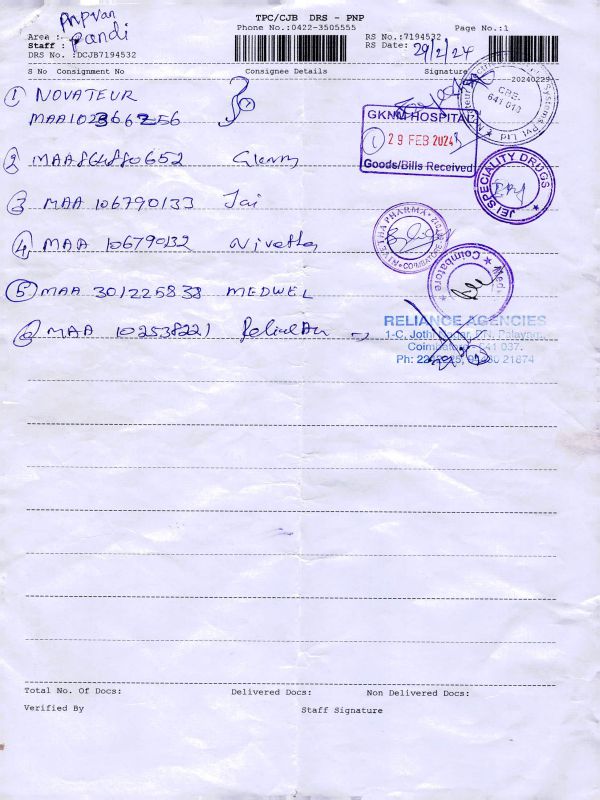 TPC/CJB DRS - PNP
Phone No.:0422-3505555
Page No.:1
pnpvan
Area :
pandi
Staff :
RS No.:7194532
RS Date: 29/2/24
DRS No. :DCJB7194532
S No Consignment No
Consignee Details
Signature
20240229
① NOVATEUR
MAA102366256
GKNM HOSPITAL
29 FEB 2024
Goods/Bills Received
CBE-
641 013
Systems Pvt. Ltd.
② MAA864880652
JEI SPECIALITY DRUGS
③ MAA 106790133 Jai
④ MAA 106790132 Nivetha
NIVETHA PHARMA
COIMBATORE
Coimbatore
⑤ MAA 301225838 MEDWEL
⑥ MAA 102538221
RELIANCE AGENCIES
1-C, Jothi
Coimbatore 641 037.
Ph:
21874
Total No. Of Docs:
Delivered Docs:
Non Delivered Docs:
Verified By
Staff Signature